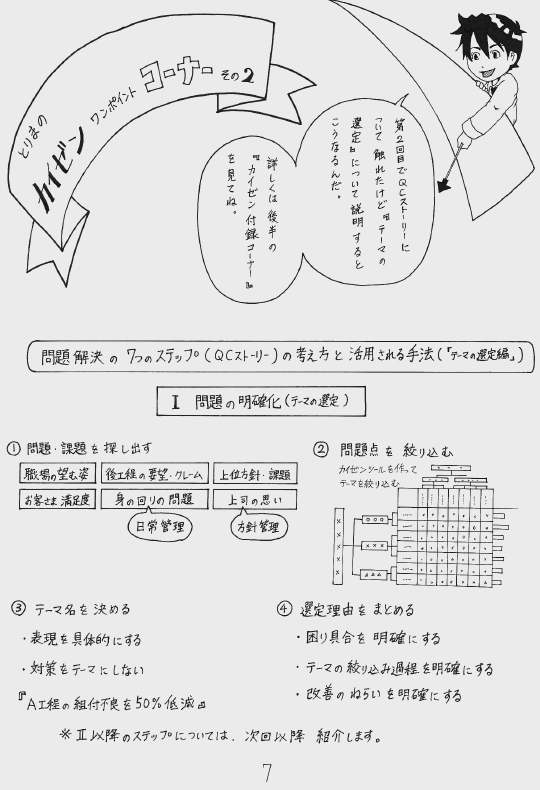 とりまの
カイゼン
ワンポイント
コーナー その2
第2回目でQCストーリーに
ついて触れたけど『テーマの
選定』について説明すると
こうなるんだ。
詳しくは後半の
『カイゼン付録コーナー』
を見てね。
問題解決の7つのステップ(QCストーリー)の考え方と活用される手法(「テーマの選定編」)
I 問題の明確化(テーマの選定)
① 問題・課題を探し出す
職場の望む姿 後工程の要望・クレーム 上位方針・課題
お客さま満足度 身の回りの問題 上司の思い
日常管理 方針管理
② 問題点を絞り込む
カイゼンツールを作って
テーマを絞り込む
×
×
×
×
○○○
×××
△△△
③ テーマ名を決める
・表現を具体的にする
・対策をテーマにしない
『A工程の組付不良を50%低減』
④ 選定理由をまとめる
・困り具合を明確にする
・テーマの絞り込み過程を明確にする
・改善のねらいを明確にする
※Ⅱ以降のステップについては、次回以降紹介します。
7